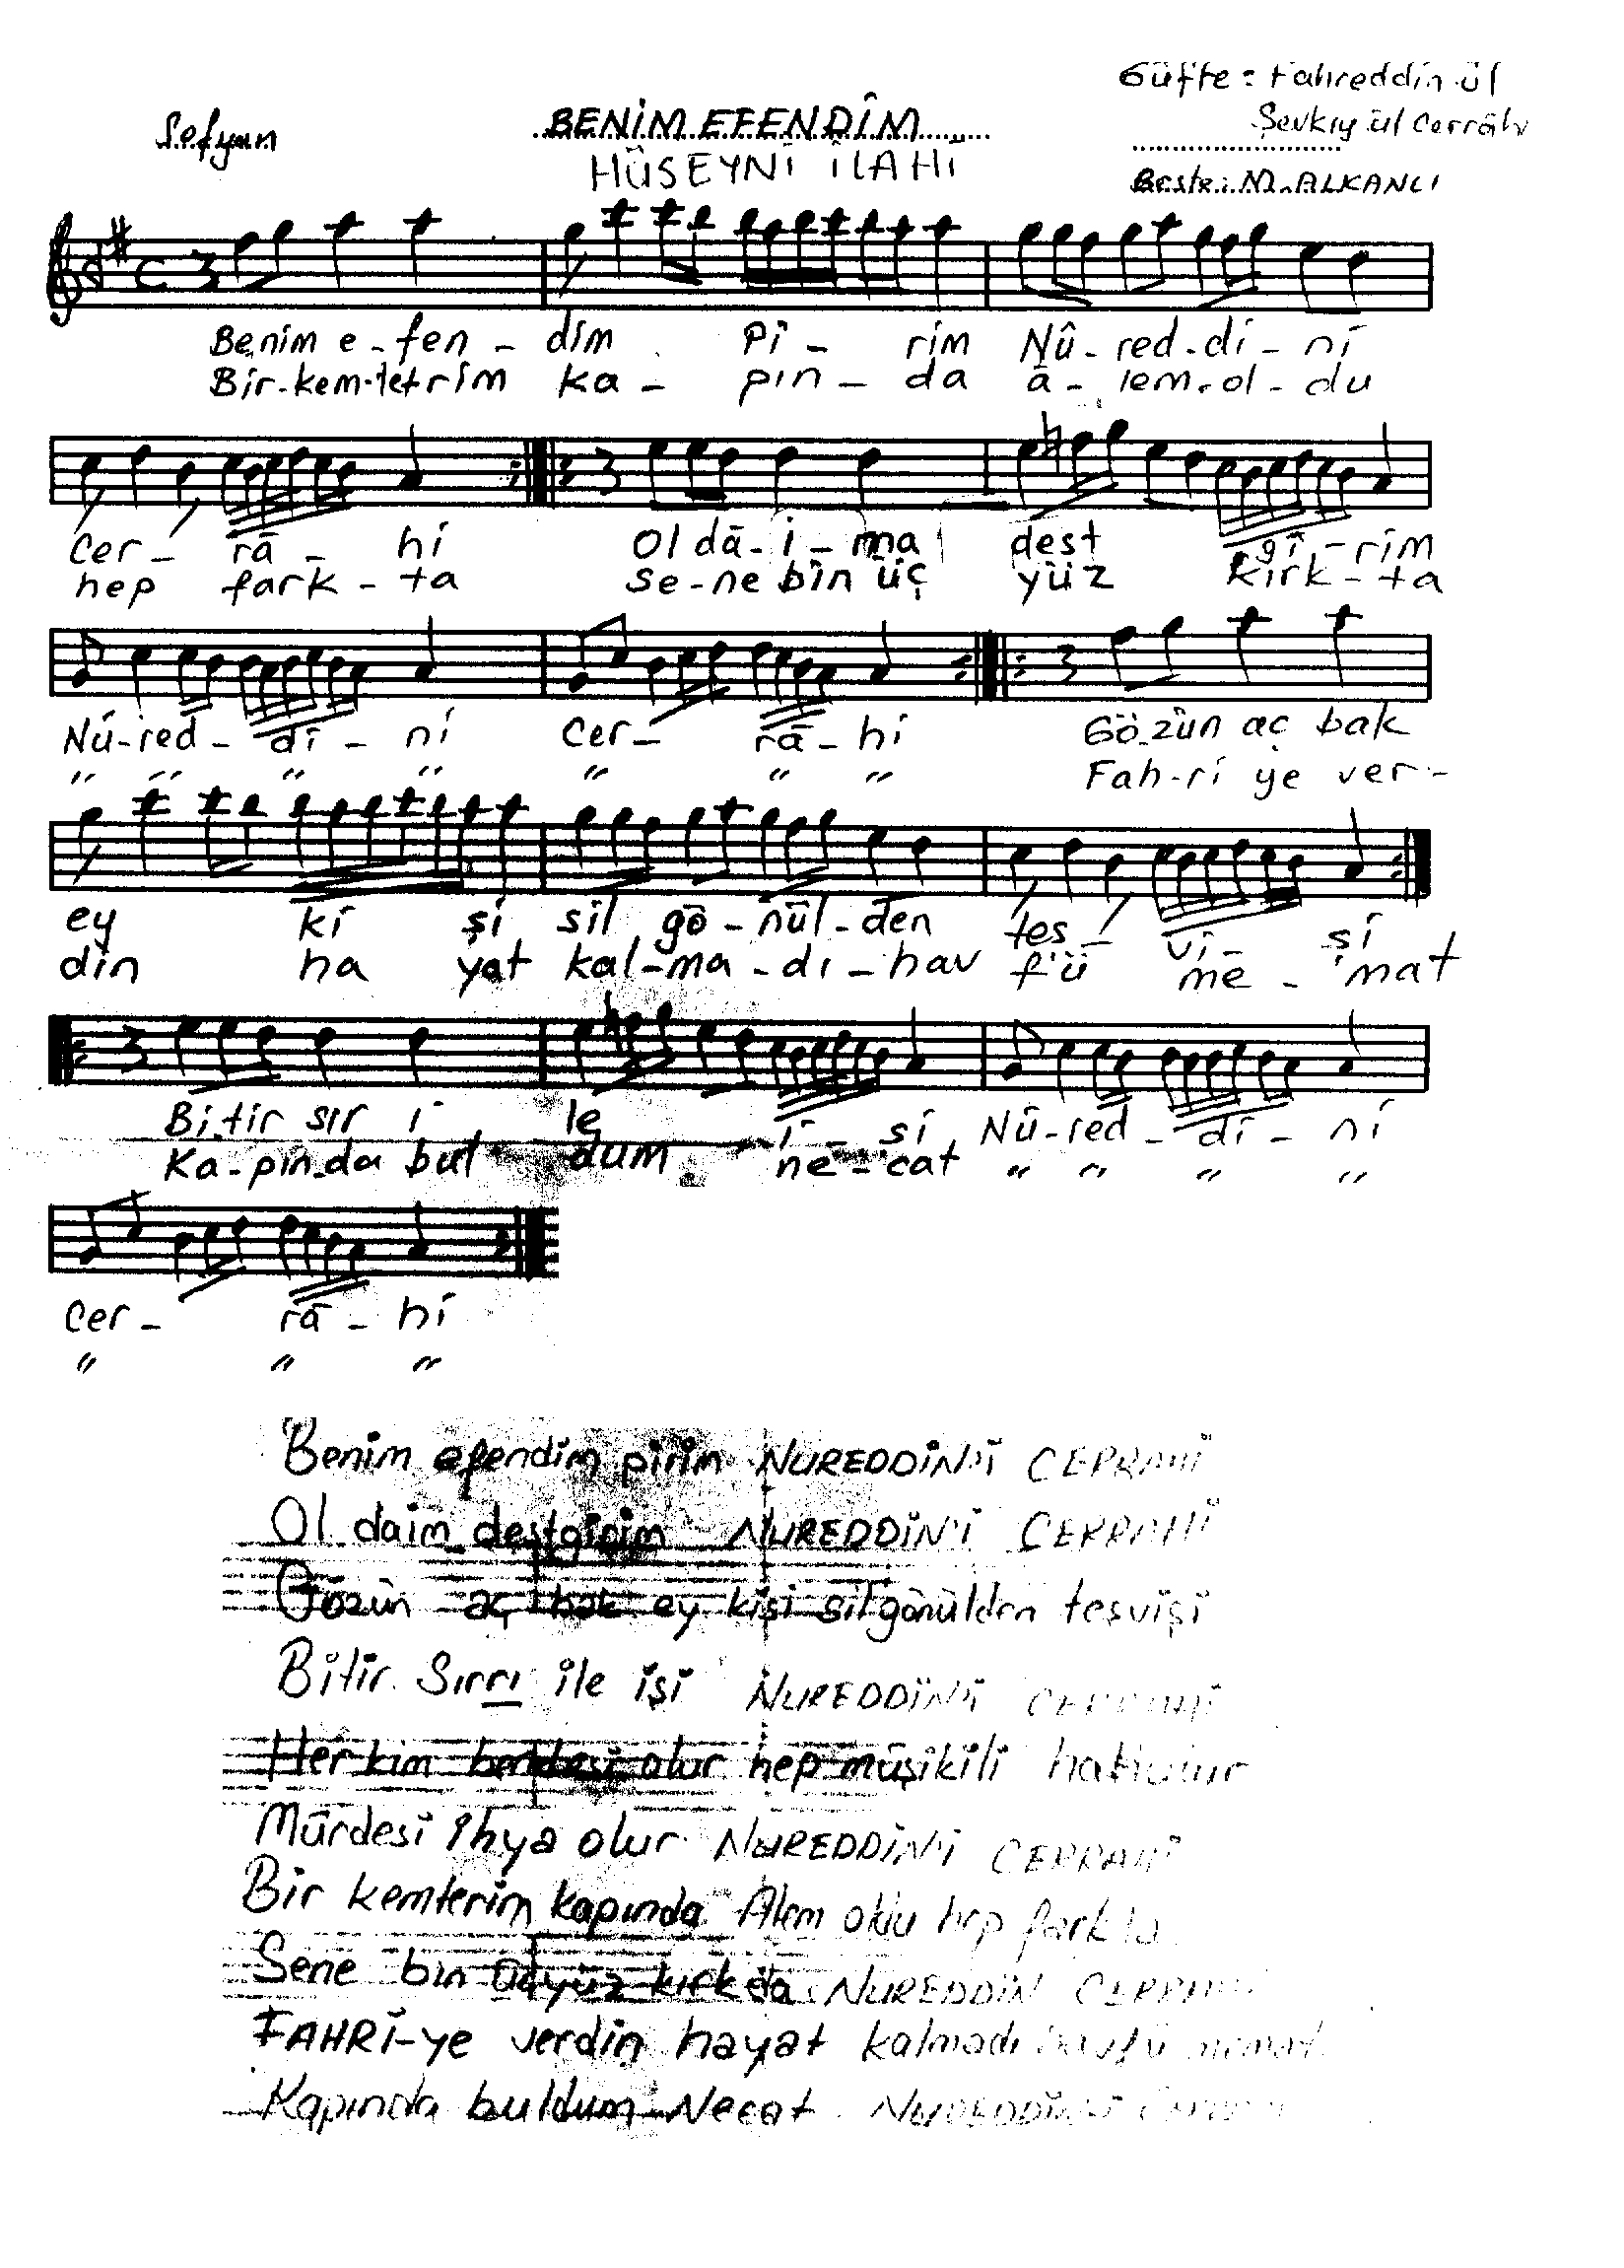 Güfte: Fahreddin ül
Şevkıy ül Cerrâhi
Sofyan
BENİM EFENDİM
HÜSEYNİ İLAHİ
Beste: M. ALKANLI
Benim e-fen-dim Pi-rim Nû-red-di-ni
Bir-kem-ter-rim ka-pın-da â-lem-ol-du
Cer-râ-hi Ol dâ-i-ma dest gî-rim
hep fark-ta se-ne bin üç yüz kırk-ta
Nû-red-di-ni Cer-râ-hi Gö-zün aç bak
" " " " " " " Fah-ri ye ver-
ey ki şi sil gö-nül-den teş-vi-şi
din ha yat kal-ma-dı-hav f'ü me-mat
Bi-tir sır i le i-şi Nû-red-di-ni
Ka-pın-da bul dum ne-cat " " " "
Cer-râ-hi
" " "
Benim efendim pirim NUREDDİN'İ CERRAHİ
Ol daim destgirim NUREDDİN'İ CERRAHİ
Gözün aç bak ey kişi sil gönülden teşvişi
Bitir Sırrı ile işi NUREDDİN'İ CERRAHİ
Her kim bendesi olur hep müşikili
Mürdesi ihya olur NUREDDİN'İ CERRAHİ
Bir kemterim kapında Alem oldu hep farkta
Sene bin üçyüz kırkda NUREDDİN CERRAHİ
FAHRİ-ye verdin hayat kalmadı
Kapında buldum Necat NUREDDİN'İ